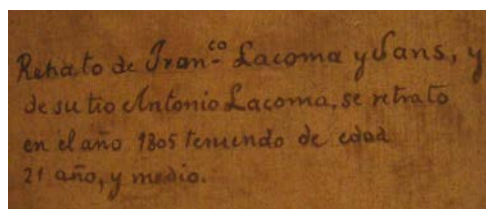 Retrato de Fran.co Lacoma y Sans, y
de su tio Antonio Lacoma, se retrato
en el año 1805 teniendo de edad
21 año, y medio.